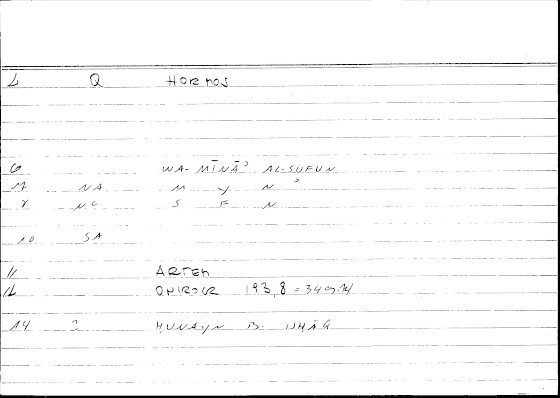 1 Q HORMOS
6 WA-MĪNĀʾ AL-SUFUN
7 NA M Y N ʾ
8 NC S F N
10 SA
11 ARTEM
12 ONIROCR 193,8 = 349.14
14 2 HUNAYN B. ISḤĀQ